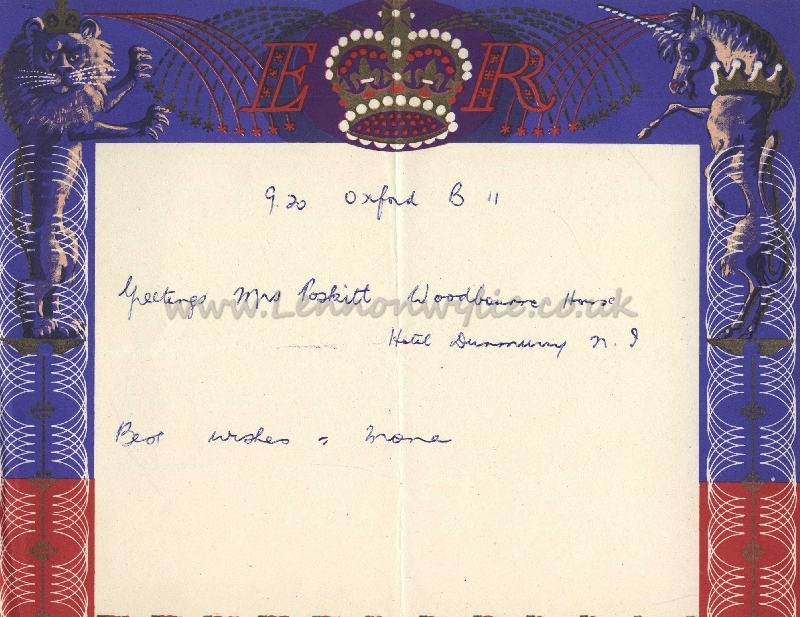 E R
9.20 Oxford B 11
Greetings Mrs Poskitt Woodbourne House
www.Lennonwylie.co.uk
Hotel Dunmurry N. I
Best wishes = Mona